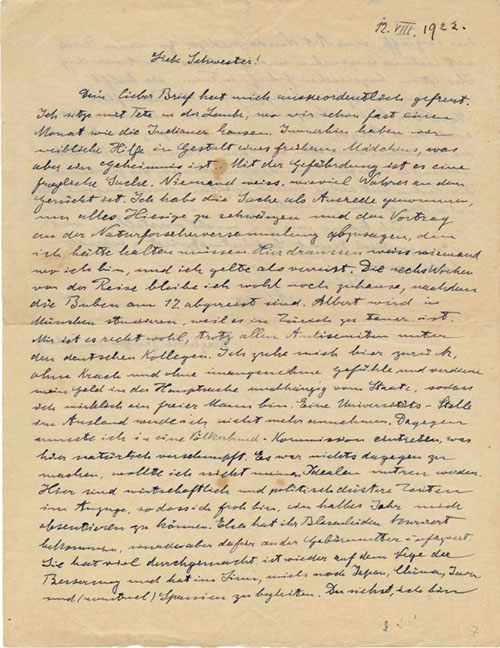 12. VIII. 1922.
Liebe Schwester!
Dein lieber Brief hat mich ausserordentlich gefreut.
Ich sitze mit Tete in der Laube, wo wir schon fast einen
Monat wie die Indianer hausen. Immerhin haben wir
weibliche Hilfe in Gestalt eines früheren Mädchens, was
aber ein Geheimnis ist. Mit der Gefährdung ist es eine
fragliche Sache. Niemand weiss, wieviel Wahres an dem
Gerücht ist. Ich habe die Sache als Ausrede genommen,
um alles Hiesige zu schwänzen und den Vortrag
an der Naturforscherversammlung abzusagen, den
ich hätte halten müssen. Hier draussen weiss niemand
wo ich bin, und ich gelte als verreist. Die sechs Wochen
vor der Reise bleibe ich wohl noch zuhause, nachdem
die Buben am 17. abgereist sind. Albert wird in
München studieren, weil es in Zürich zu teuer ist.
Mir ist es recht wohl, trotz allen Antisemiten unter
den deutschen Kollegen. Ich ziehe mich hier zurück,
ohne Krach und ohne unangenehme Gefühle und verdiene
mein Geld in der Hauptsache unabhängig vom Staate, sodass
ich wirklich ein freier Mann bin. Eine Universitäts-Stelle
im Ausland werde ich nicht mehr annehmen. Dagegen
musste ich in eine Völkerbund-Kommission eintreten, was
hier natürlich verschnupft. Es war nichts dagegen zu
machen, wollte ich nicht meinen Idealen untreu werden.
Hier sind wirtschaftlich und politisch düstere Zeiten
im Anzuge, sodass ich froh bin, ein halbes Jahr mich
absentieren zu können. Elsa hat ihr Blasenleiden
bekommen, an der Gebärmutter
Sie hat viel durchgemacht ist wieder auf dem Wege der
Besserung und hat im Sinn, mich nach Japan, China, Java
und (eventuel) Spanien zu begleiten. Du siehst, ich bin